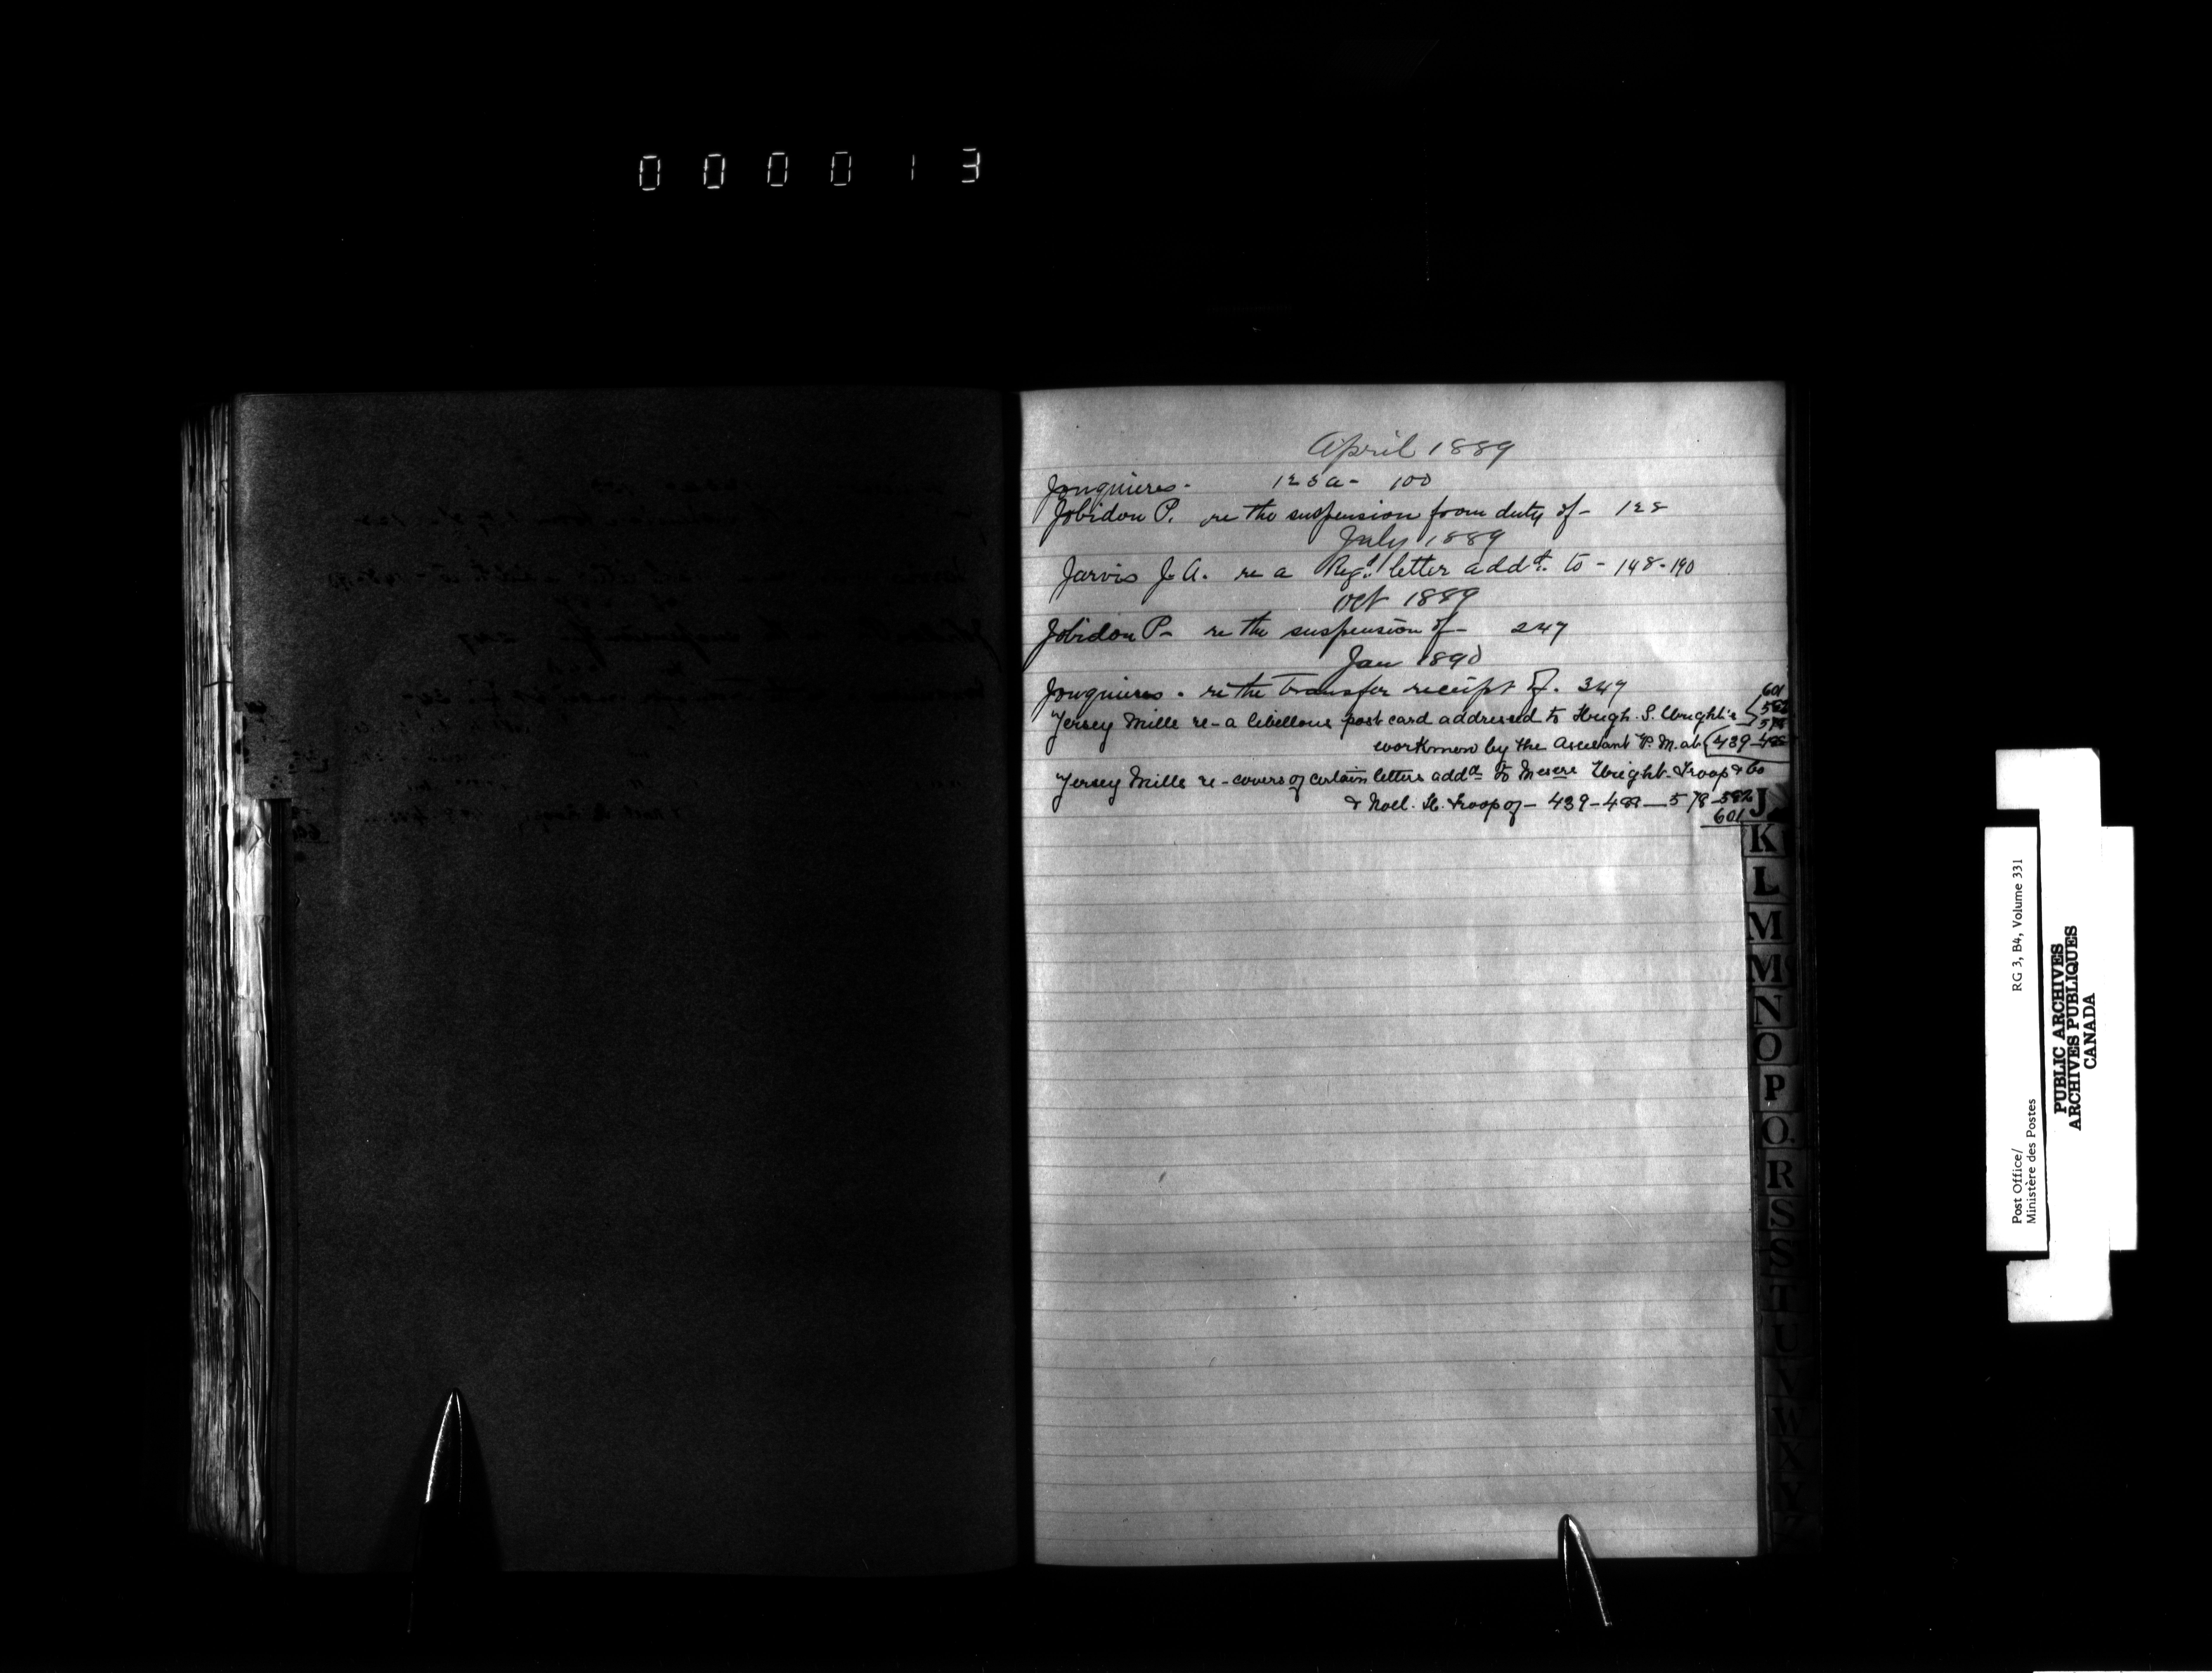 000013
April 1889
Jonquieres - 125a - 100
Jobidon P. re the suspension from duty of - 122
July 1889
Jarvis J. A. re a Regd letter addd to - 148-190
Oct 1889
Jobidon P - re the suspension of - 247
Jan 1890
Jonquieres . re the transfer receipt of . 347
601
582
578
Jersey Mills re - a libellous post card addressed to Hugh. S. Wright's
workmen by the Assistant P. M. at 439-488
Jersey Mills re - covers of certain letters addd to Messrs Wright. Troop & Co
& Noel. H. Troop of - 439-488-578-582
601
J
K
L
M
Mc
N
O
P
Q
R
S
S
T
U
V
W
X
Y
Z
Post Office/
Ministère des Postes
RG 3, B4, Volume 331
PUBLIC ARCHIVES
ARCHIVES PUBLIQUES
CANADA